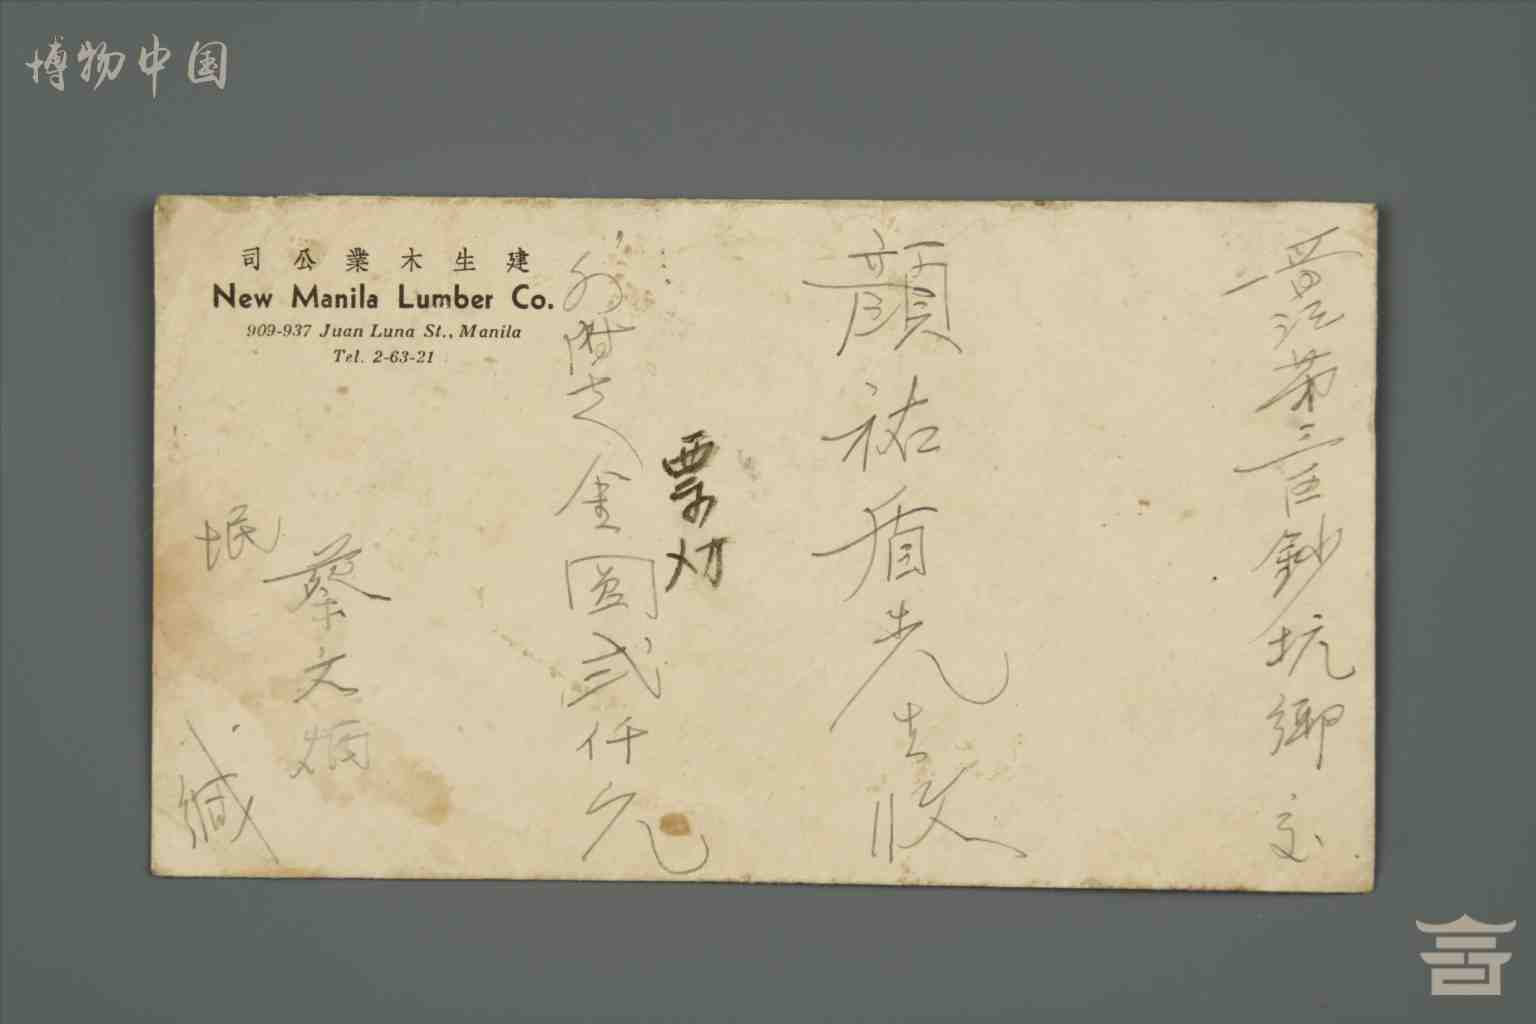 博物中国
司公業木生建
New Manila Lumber Co.
909-937 Juan Luna St., Manila
Tel. 2-63-21
晋江第三區鈔坑鄉交
顏祐盾先生收
票
外附之金圓貳仟元
蔡文炳
垊
緘